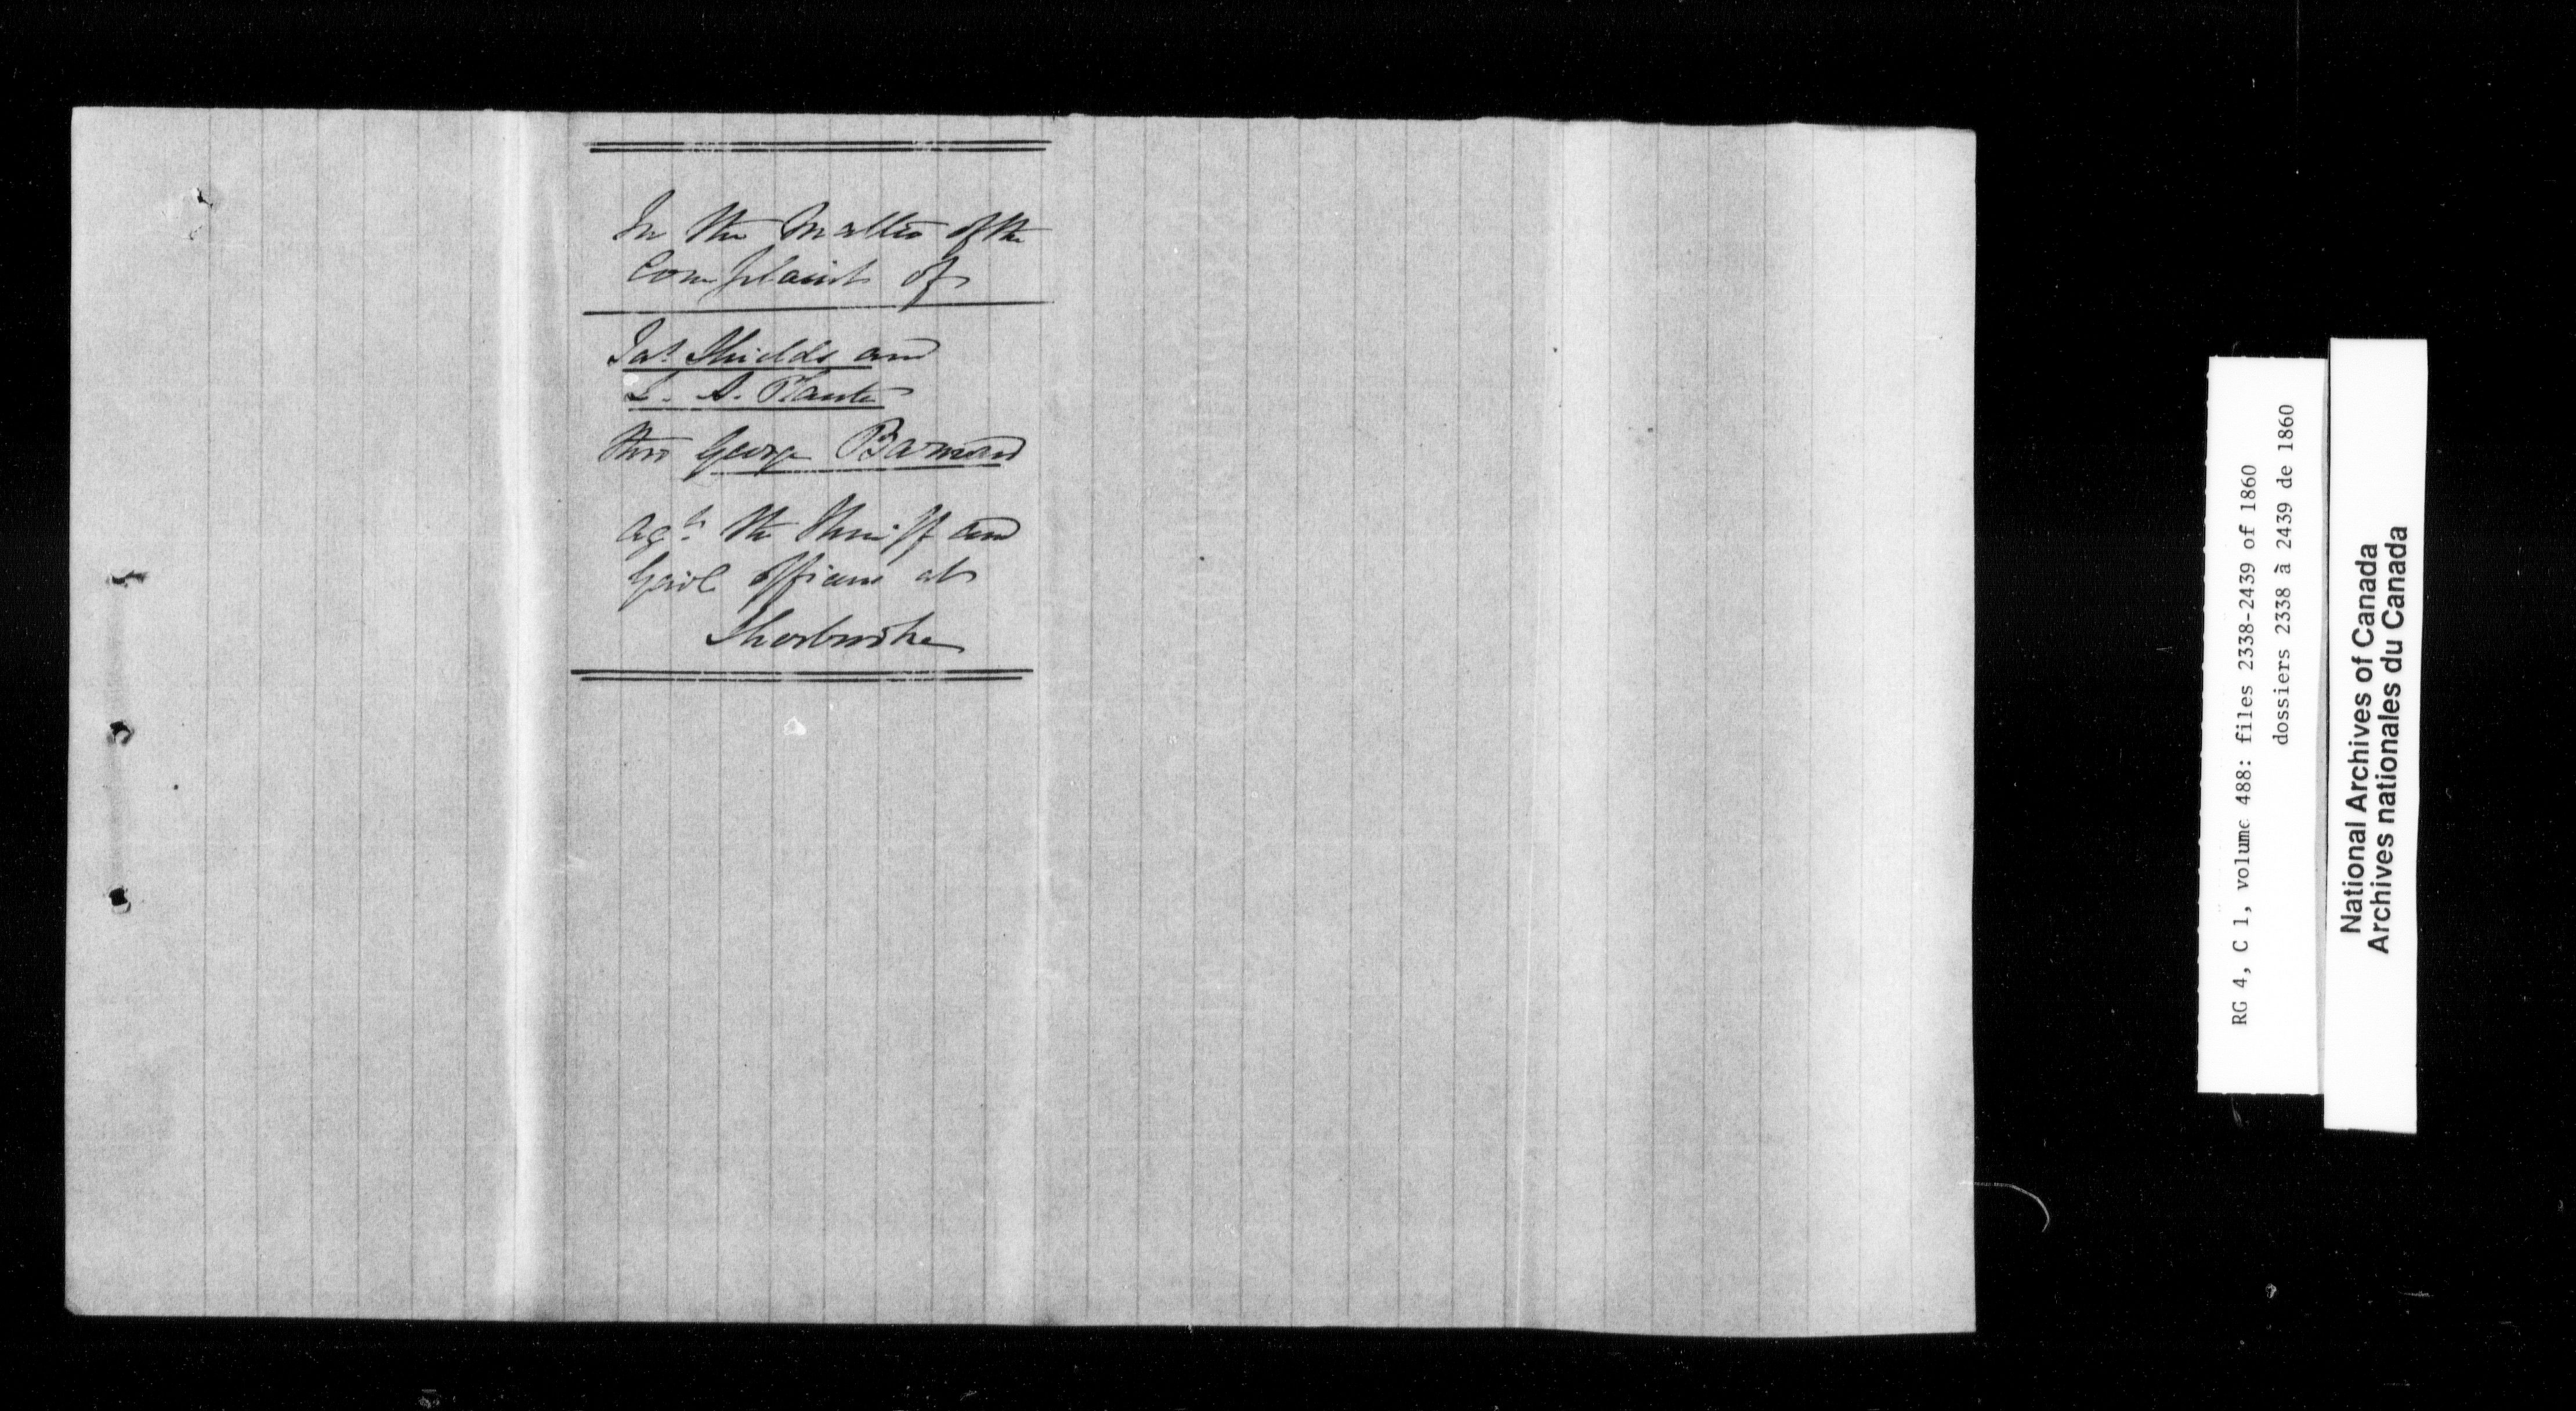 In the Matter of the
Complaint of
Jas Shields and
L. A. Plante
thro George Barnard
agst the Sheriff and
Gaol officers at
Sherbrooke
RG 4, C 1, volume 488: files 2338-2439 of 1860
dossiers 2338 à 2439 de 1860
National Archives of Canada
Archives nationales du Canada